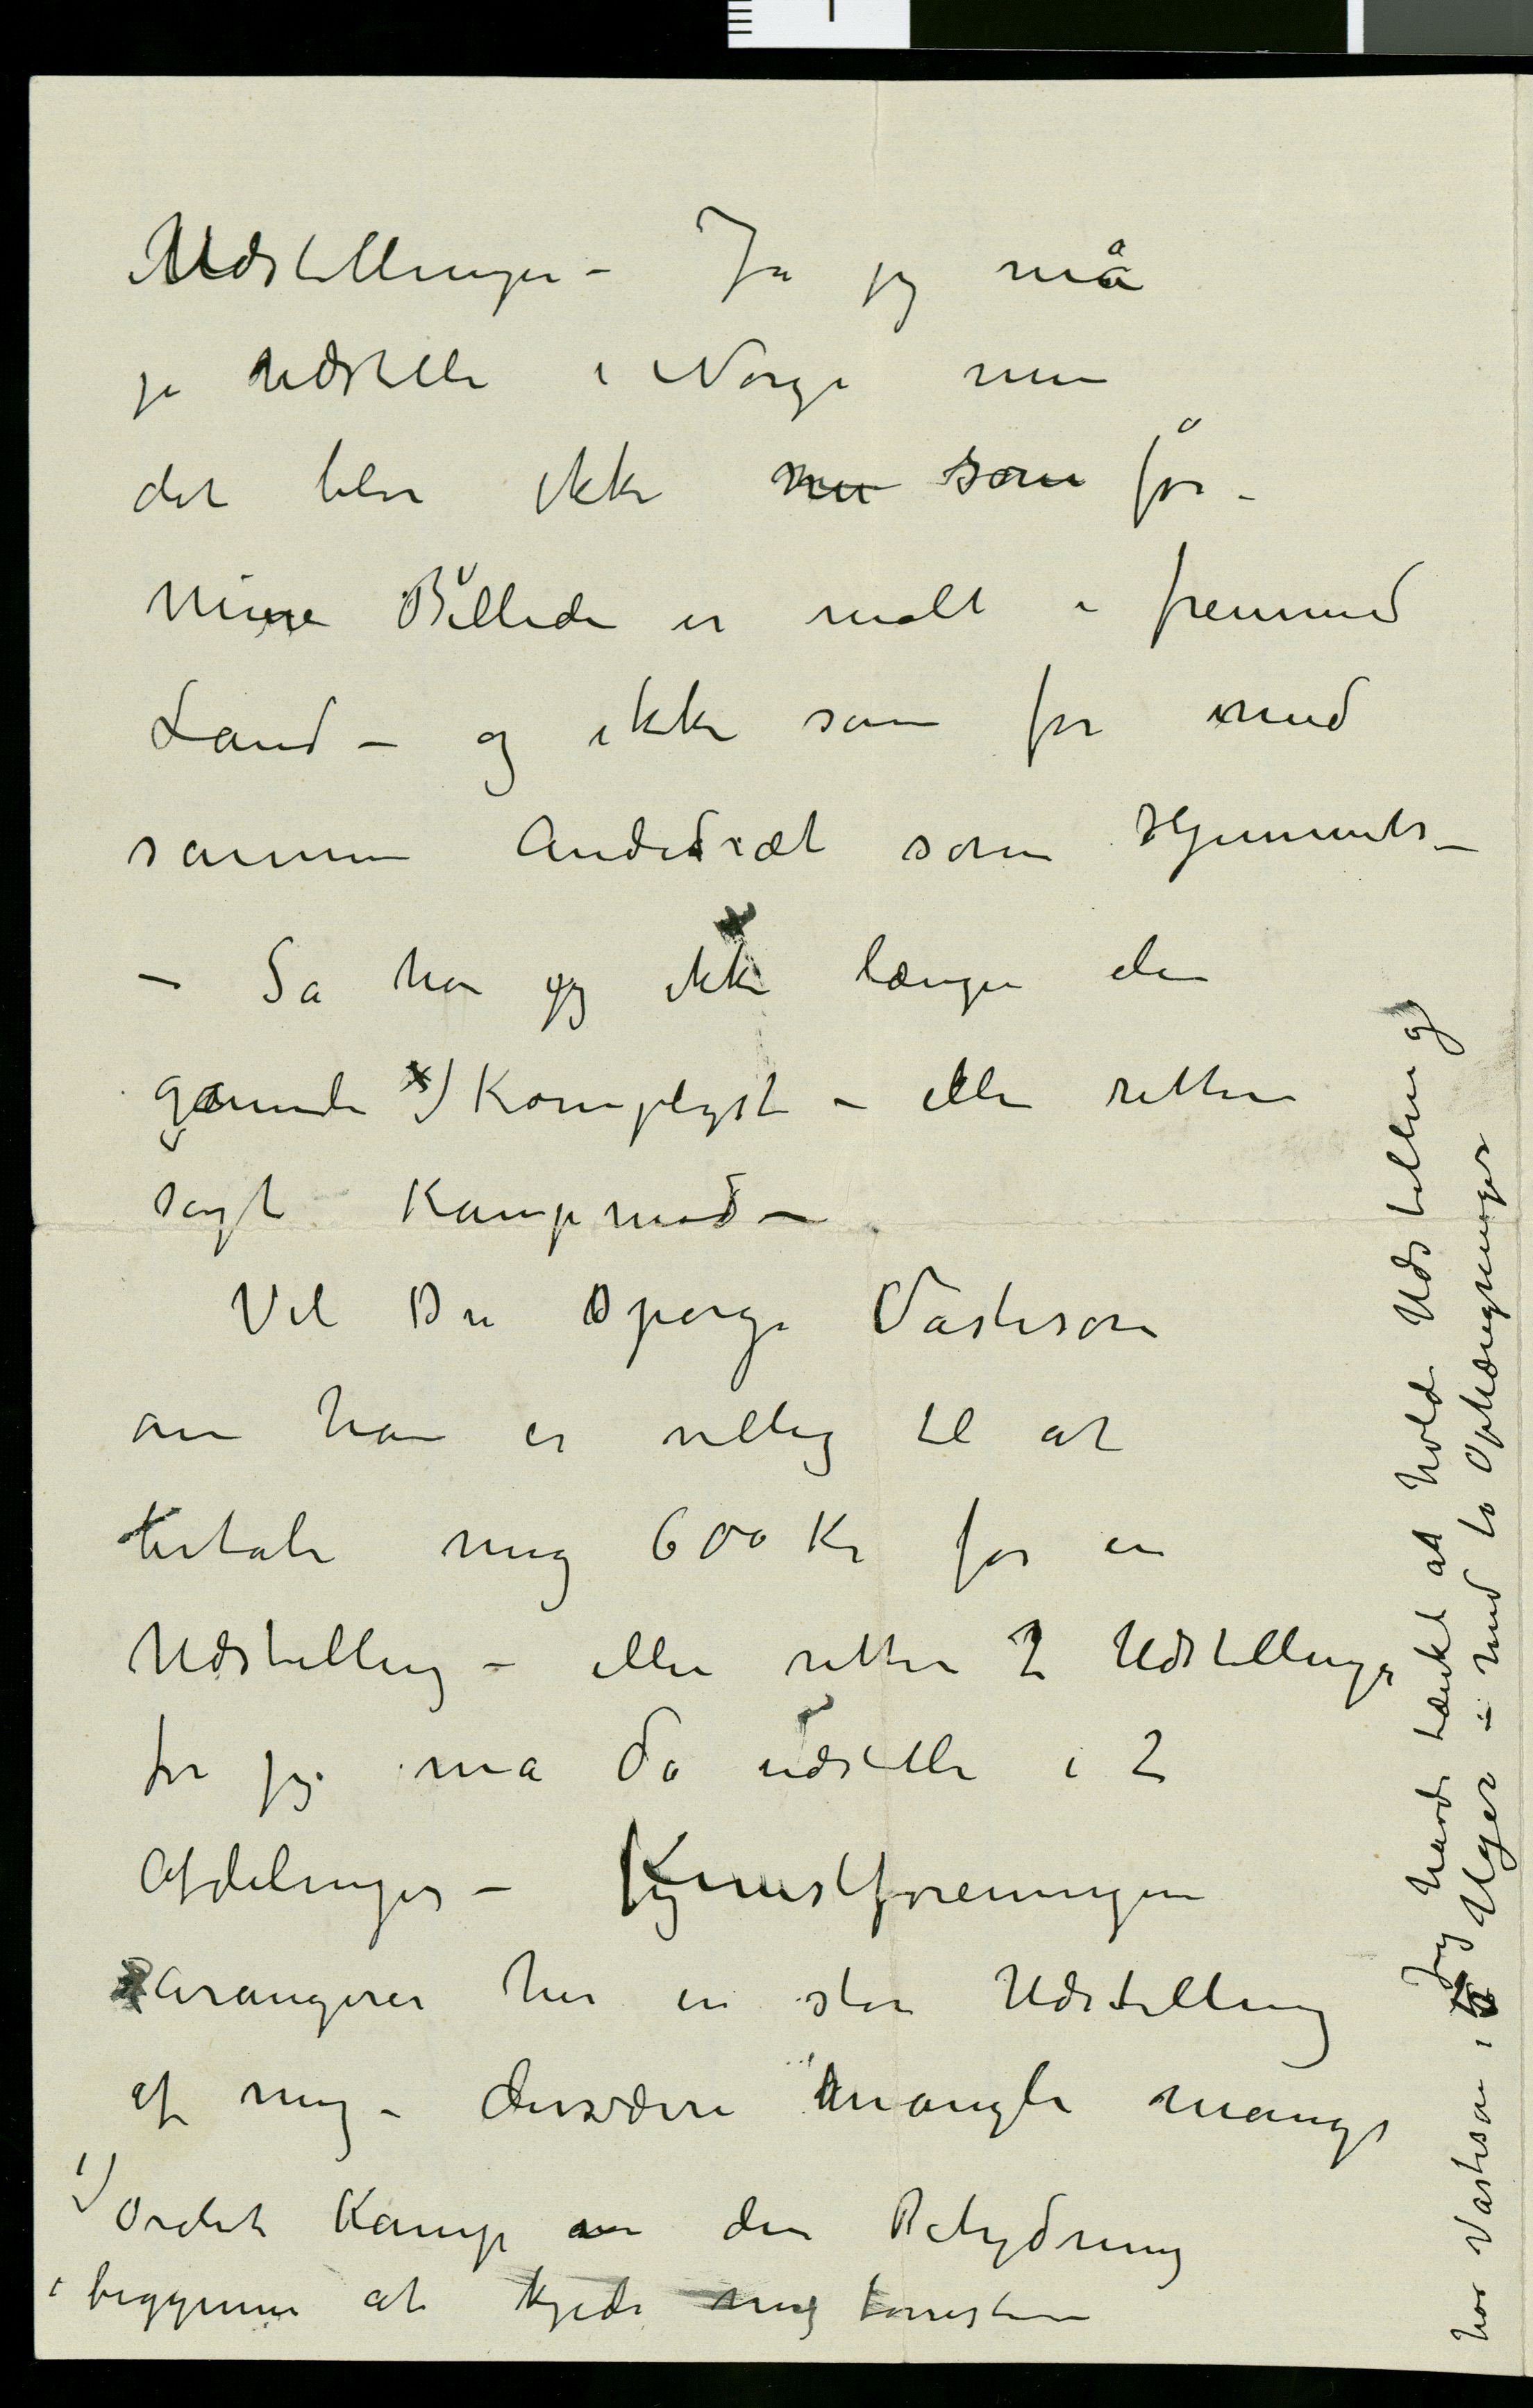 Udstillinger – Ja jeg må
jo udstille i Norge men
det blir ikke nu som før –
Mine Billeder er malt i fremmed
Land – og ikke som før med
samme Andedræt som Hjemmets –
– Så har jeg ikke længer den
gamle x) Kamplyst – eller rettere
sagt Kampmod –
Vil Du spørge Vastison
om han er villig til at
betale mig 600 Kr for en
Udstilling – eller rettere 2 Udstillinger
for jeg må da udstille i 2
Afdelinger – Kunstforeningen
arangerer her en stor Udstilling
af mig – desværre mangler mange
1) Ordet Kamp den Betydning
begynner at kjede mig forresten
Jeg havde tænkt at holde Udstilling
hos Vastison i Uger – med to Ophængninger